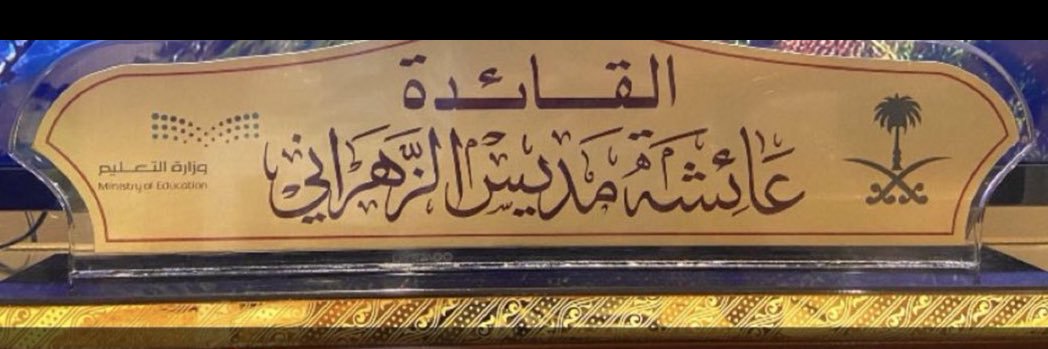 القائدة
عائشة مديس الزهراني
وزارة التعليم
Ministry of Education